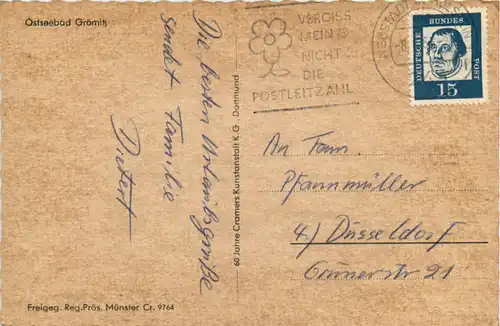 Ostseebad Grömitz
Die besten Urlaubsgrüße
sendet Familie
60 Jahre Cramers Kunstanstalt K.G. Dortmund
VERGISS
MEIN
NICHT
DIE
POSTLEITZAHL
DEUTSCHE BUNDESPOST
15
An Fam.
Pfannmüller
4) Düsseldorf
Grunerstr 21
Freigeg. Reg.Präs. Münster Cr. 9764